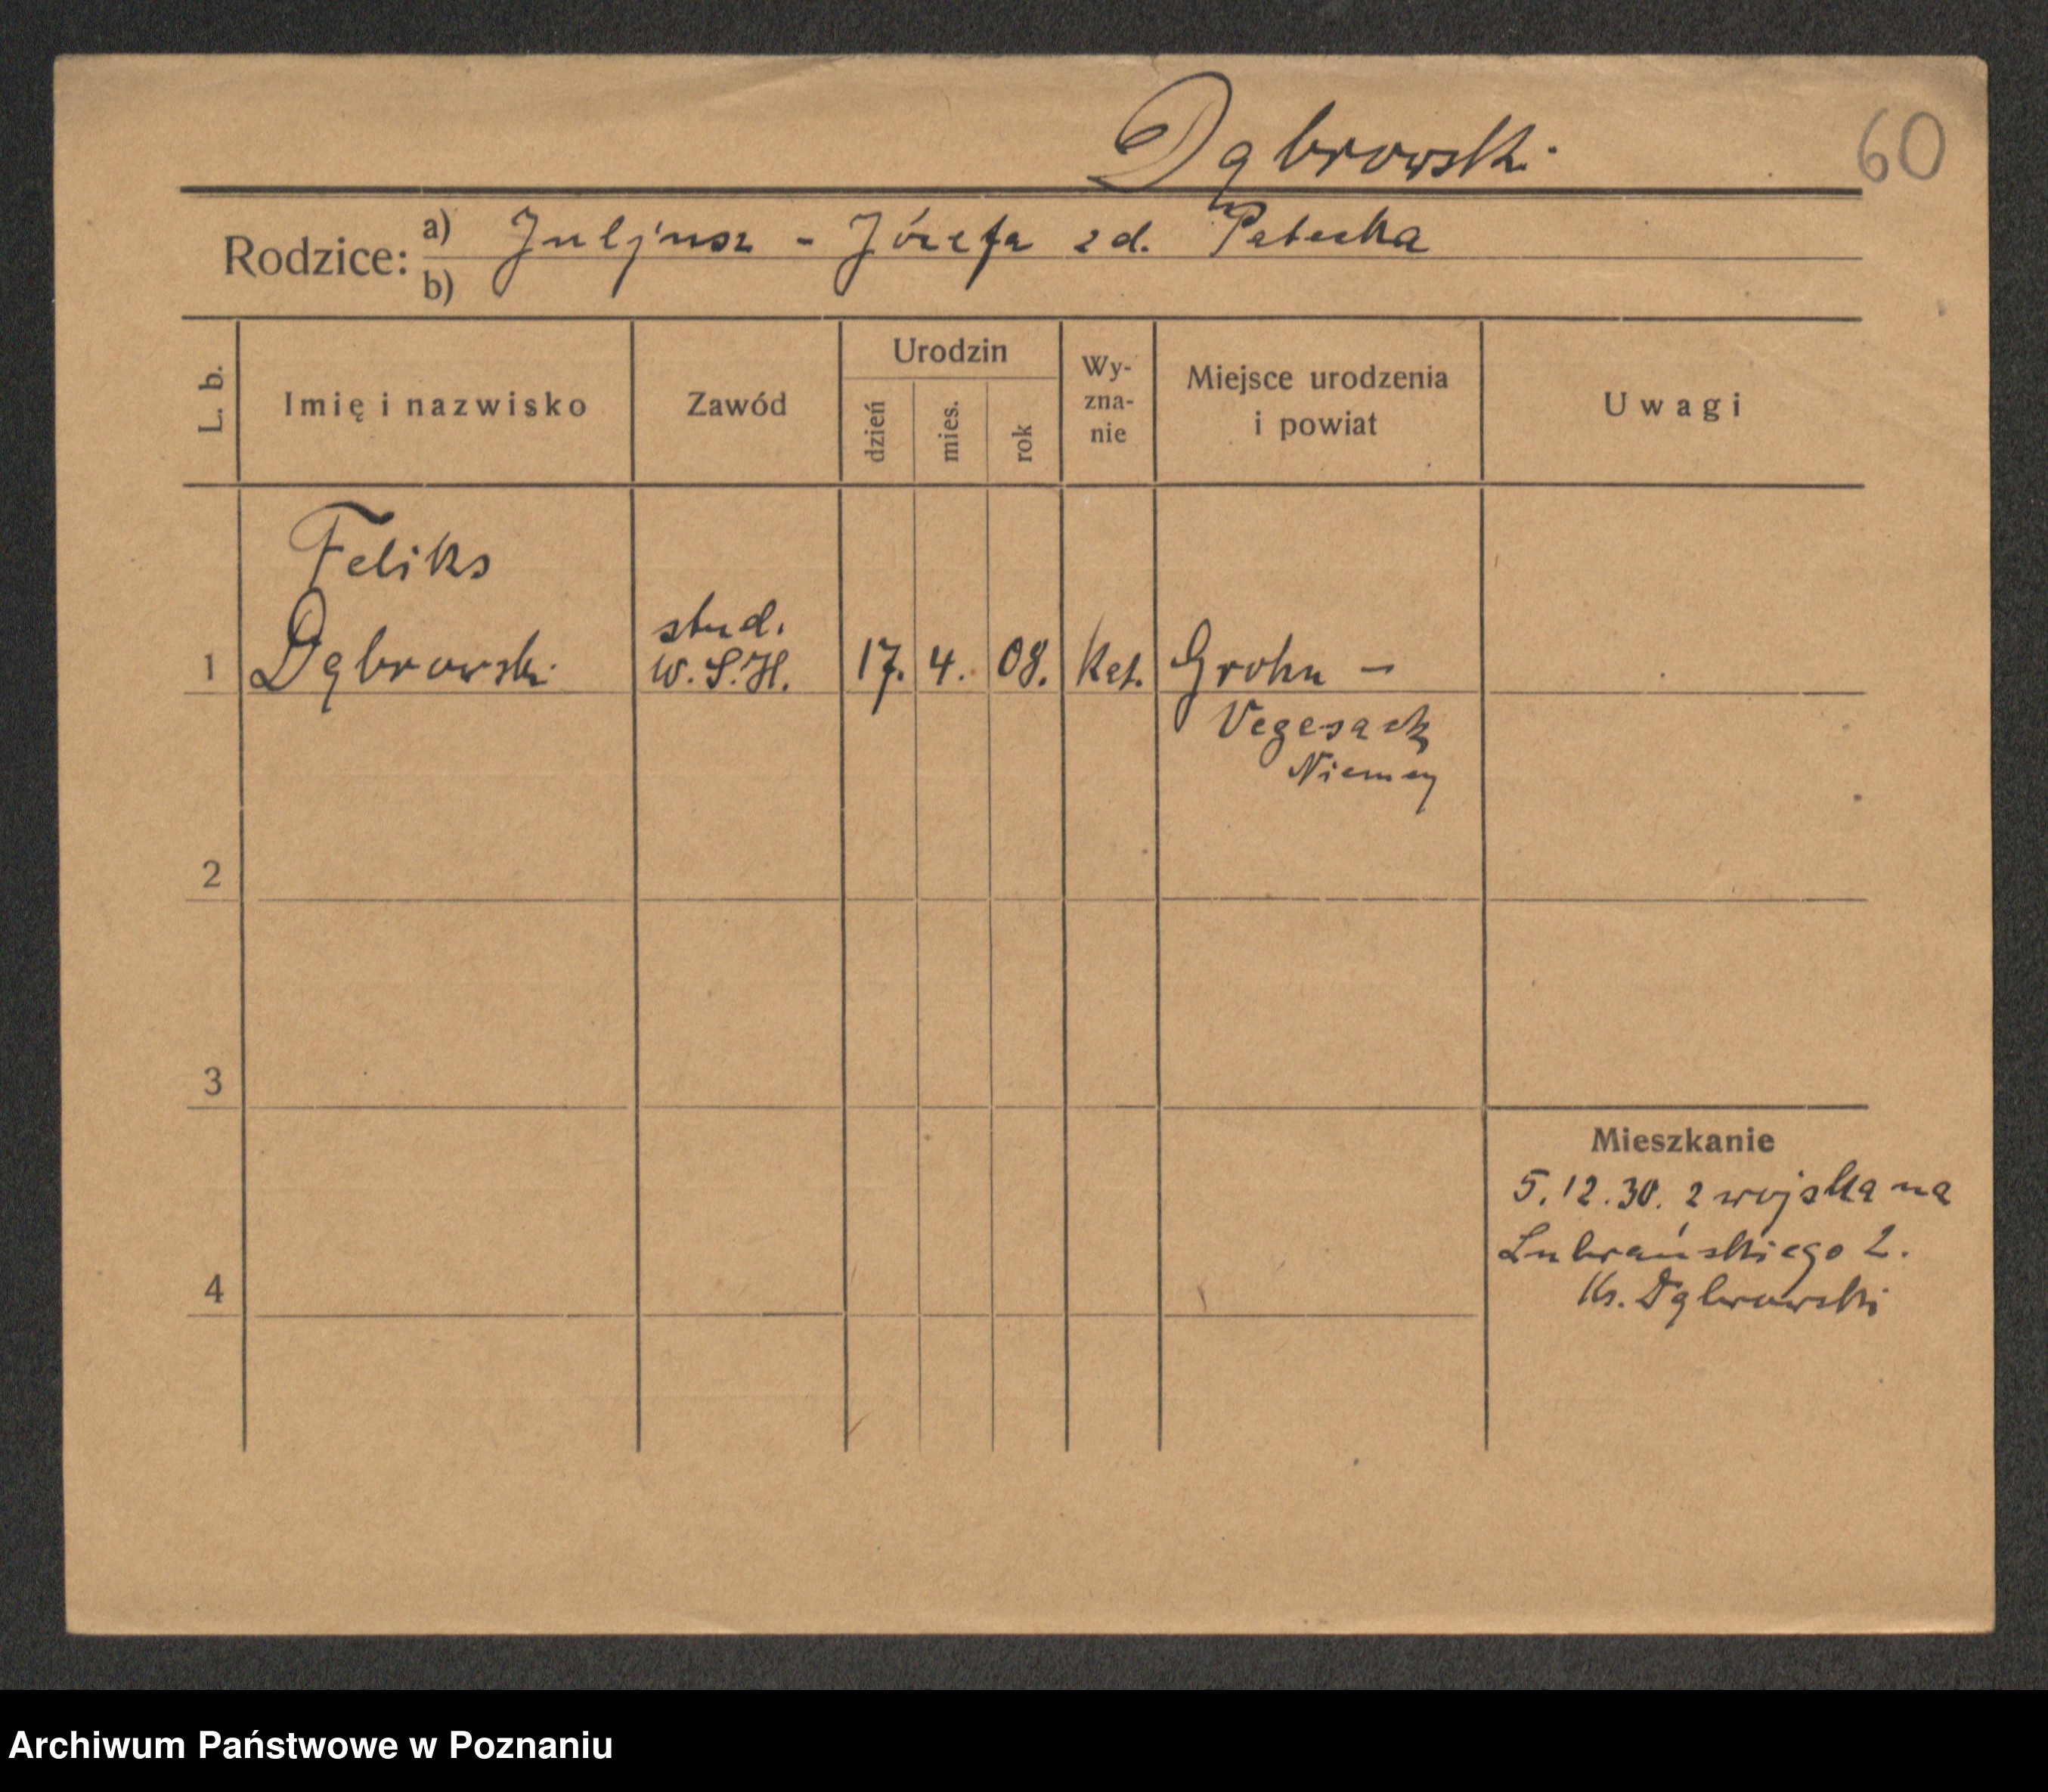 Dąbrowski
60
Rodzice: a) Juljusz - Józefa zd.
b)
L. b.
Imię i nazwisko
Zawód
Urodzin
dzień
mies.
rok
Wy-
zna-
nie
Miejsce urodzenia
i powiat
Uwagi
Feliks
1 Dąbrowski stud. W.S.H. 17. 4. 08. kat. Grohn -
Vegesack
Niemcy
2
3
4
Mieszkanie
5.12.30. z wojska na
Lubrańskiego 2.
Ks. Dąbrowski
Archiwum Państwowe w Poznaniu